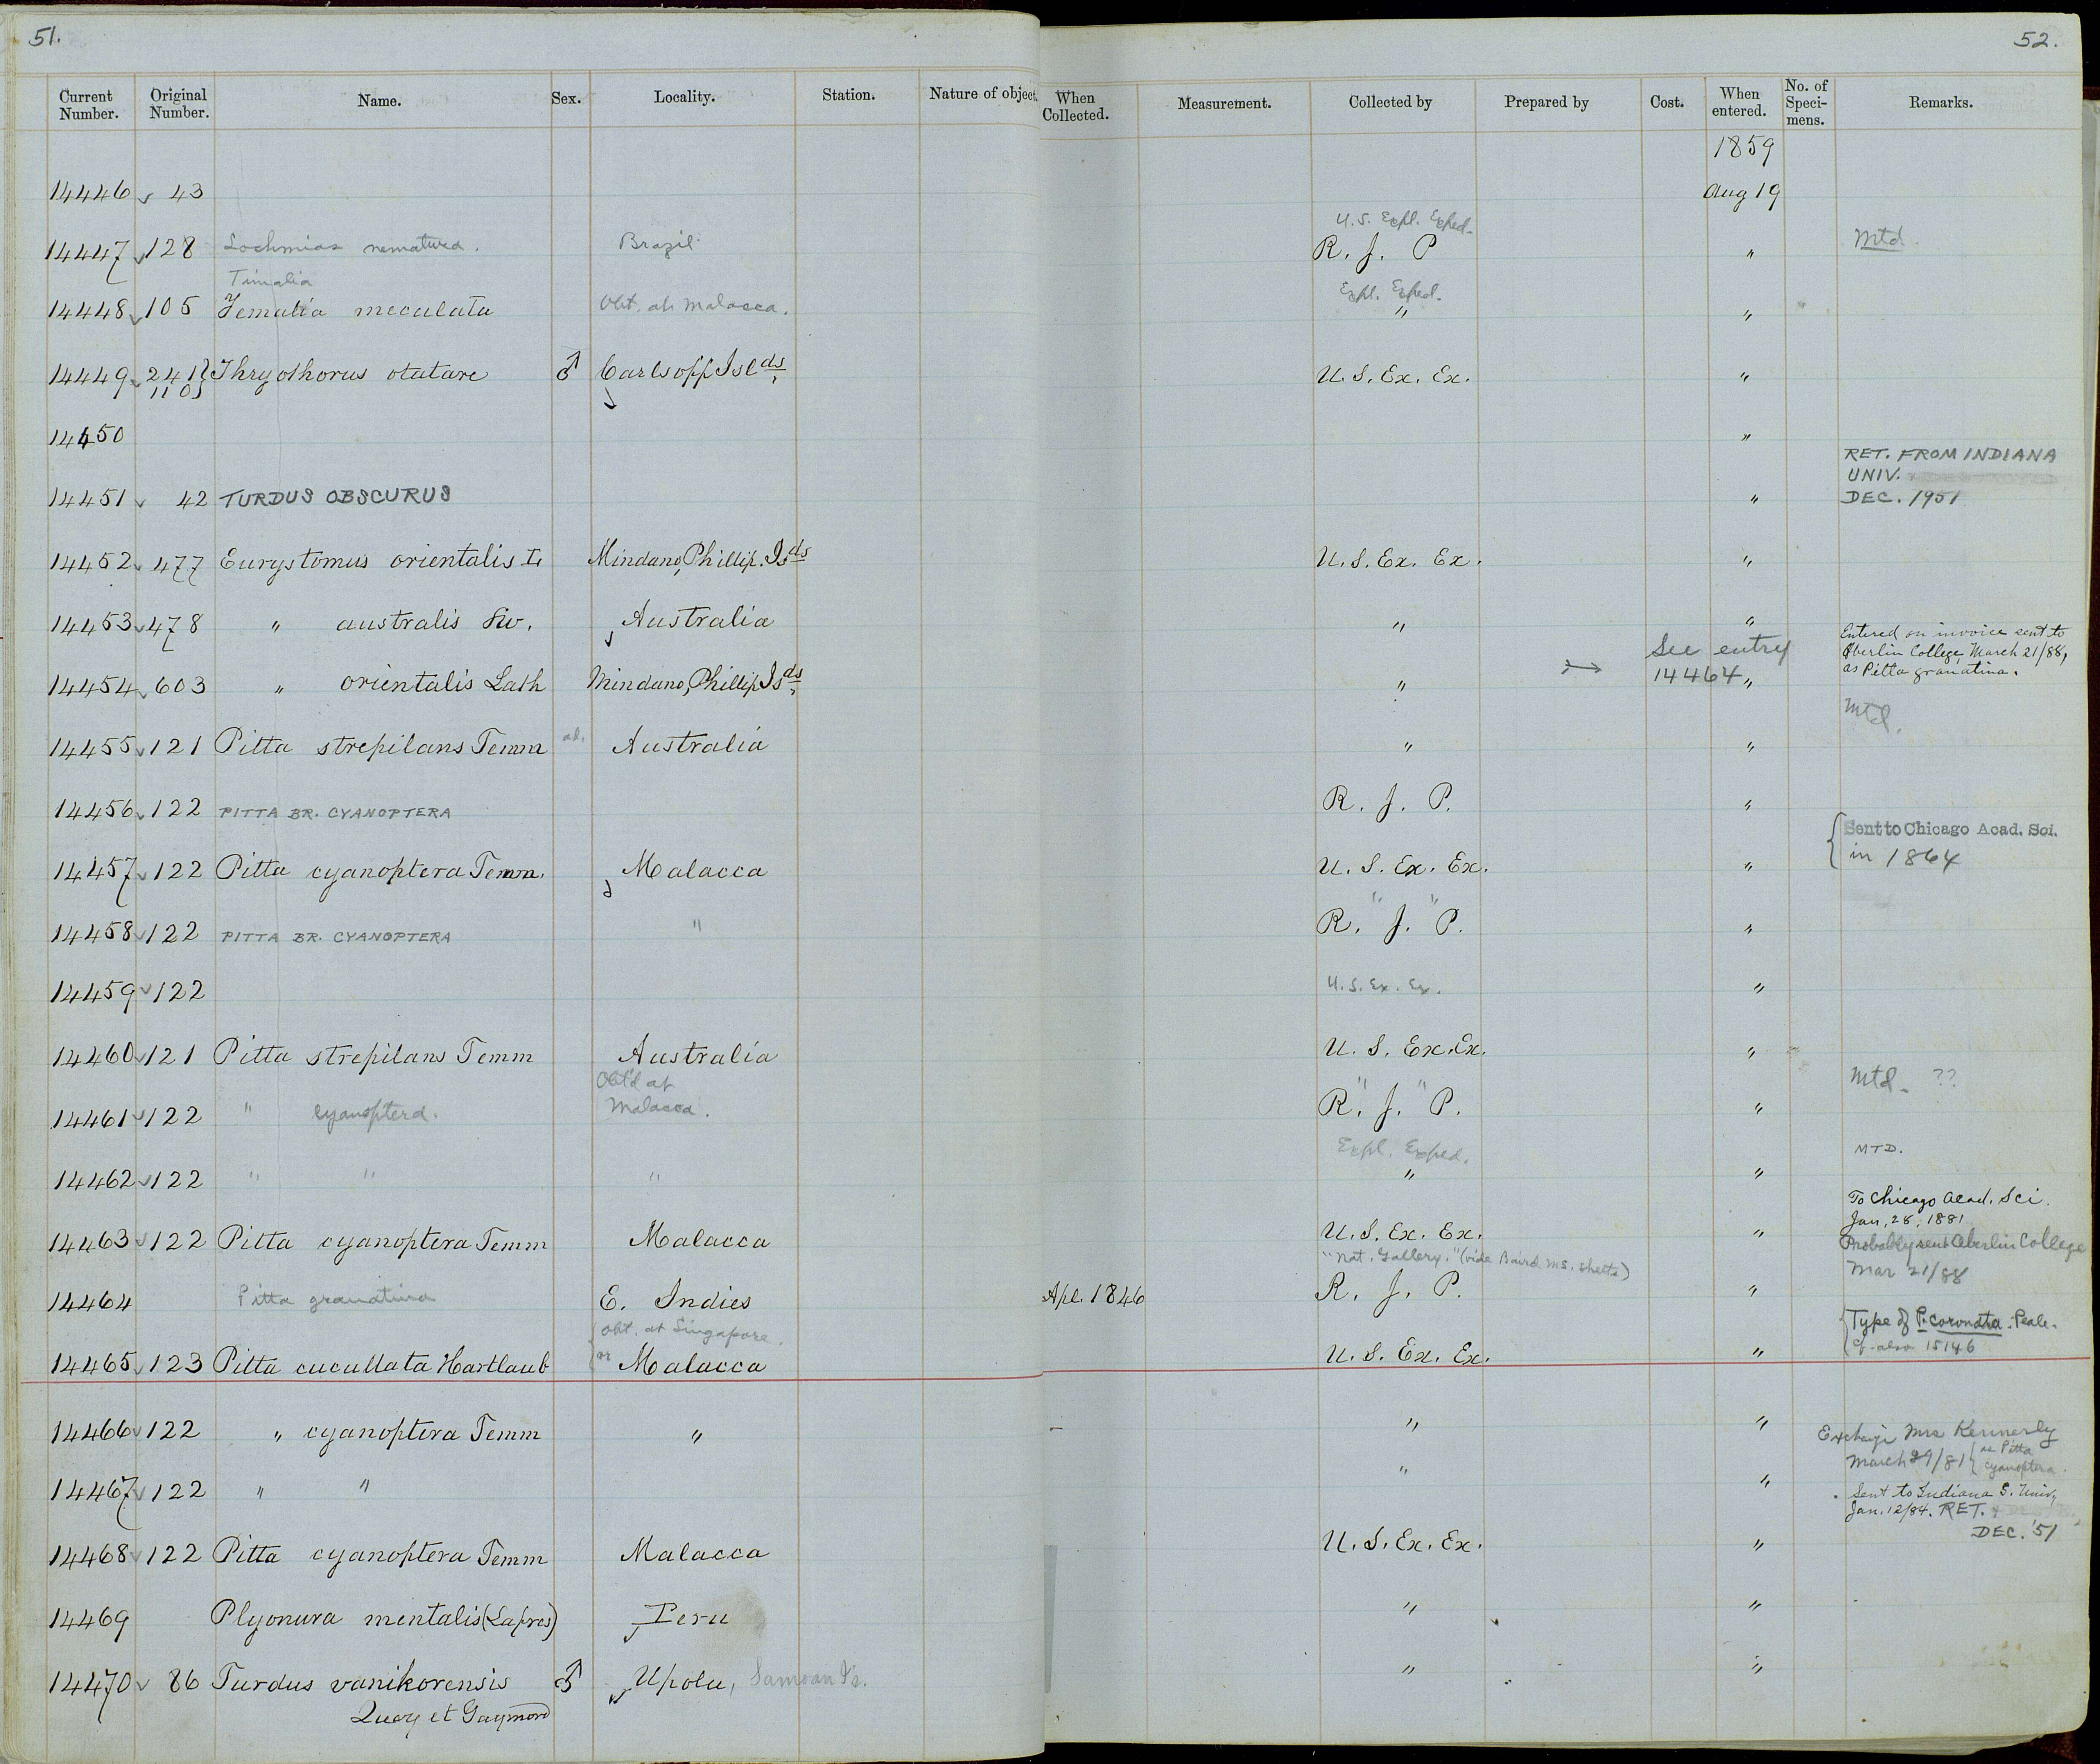 51.
52.
Current Number. Original Number. Name. Sex. Locality. Station. Nature of object. When Collected. Measurement. Collected by Prepared by Cost. When entered. No. of Speci-mens. Remarks.
1859
14446 43 Aug 19
U.S. Expl. Exped.
14447 128 Lochmias nematura. Brazil R. J. P " Mtd.
Timalia Expl. Exped.
14448 105 Temalia meculata Obt. at Malacca. " "
14449 241 Thryothorus otatare ♂ Carlsoff Islds U.S. Ex. Ex. "
110
14450 "
RET. FROM INDIANA
UNIV.
14451 42 TURDUS OBSCURUS " DEC. 1951
14452 477 Eurystomus orientalis L Mindano, Phillip. Isds U.S. Ex. Ex. "
14453 478 " australis Sw. Australia " "
See entry Entered on invoice sent to
Oberlin College March 21/88,
14454 603 " orientalis Lath Mindano, Phillip Isds " 14464 " as Pitta granatina.
Mtd.
14455 121 Pitta strepilans Temm ad. Australia " "
14456 122 PITTA BR. CYANOPTERA R. J. P. "
Sent to Chicago Acad. Sci.
in 1864
14457 122 Pitta cyanoptera Temm. Malacca U. S. Ex. Ex. "
" "
14458 122 PITTA BR. CYANOPTERA " R. J. P. "
14459 122 U.S. Ex. Ex. "
14460 121 Pitta strepilans Temm Australia U. S. Ex. Ex. "
Obt'd at " " Mtd. ??
14461 122 " cyanoptera. Malacca. R. J. P. "
Expl. Exped. MTD.
14462 122 " " " " "
To Chicago Acad. Sci.
Jan. 28, 1881
14463 122 Pitta cyanoptera Temm Malacca U. S. Ex. Ex. "
Probably sent Oberlin College
"Nat. Gallery." (vide Baird ms. sheets) Mar 21/88
14464 Pitta granatina E. Indies Apl. 1846 R. J. P. "
Obt. at Singapore. Type of P. coronata. Peale.
14465 123 Pitta cucullata Hartlaub or Malacca U. S. Ex. Ex. " Cf. also 15146
14466 122 " cyanoptera Temm " " "
Exchange Mrs Kennerly
March 29/81 as Pitta
cyanoptera.
14467 122 " " " "
Sent to Indiana S. Univ,
Jan. 12/84. RET.
DEC. '51
14468 122 Pitta cyanoptera Temm Malacca U. S. Ex. Ex. "
14469 Plyonura mentalis (Lafres) Peru " "
14470 86 Turdus vanikorensis ♂ Upolu, Samoan Is. " "
Quoy et Gaymard